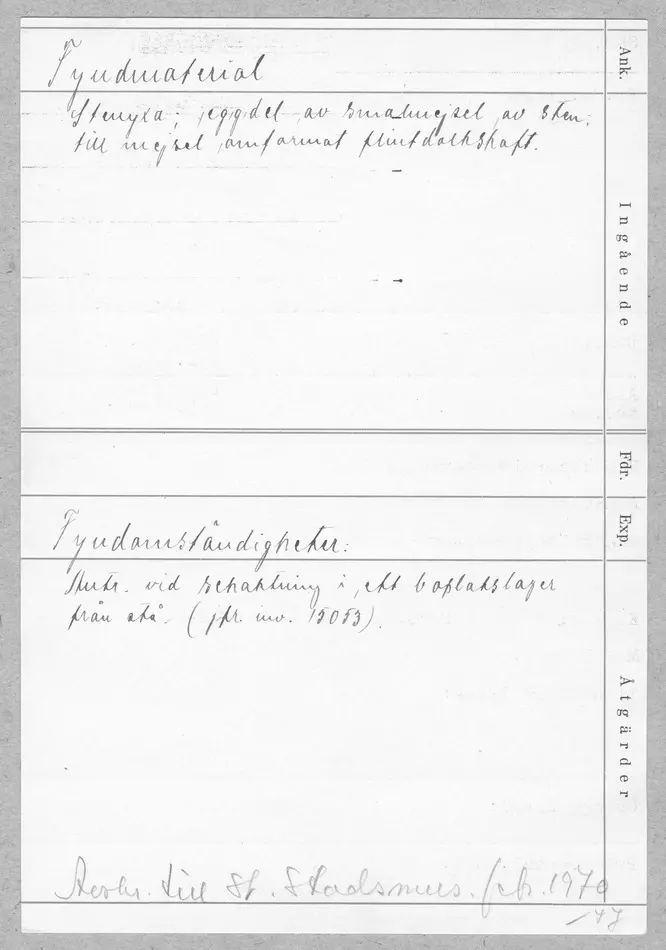 Fyndmaterial
Stenyxa; eggdel av smalmejsel av sten;
till mejsel omformat flintdolkskaft.
Fyndomständigheter:
Antr. vid schaktning i ett boplatslager
från stå. (jfr. inv. 15053).
till St. Stadsmus. feb. 1970
Ank.
Ingående
Fdr.
Exp.
Åtgärder